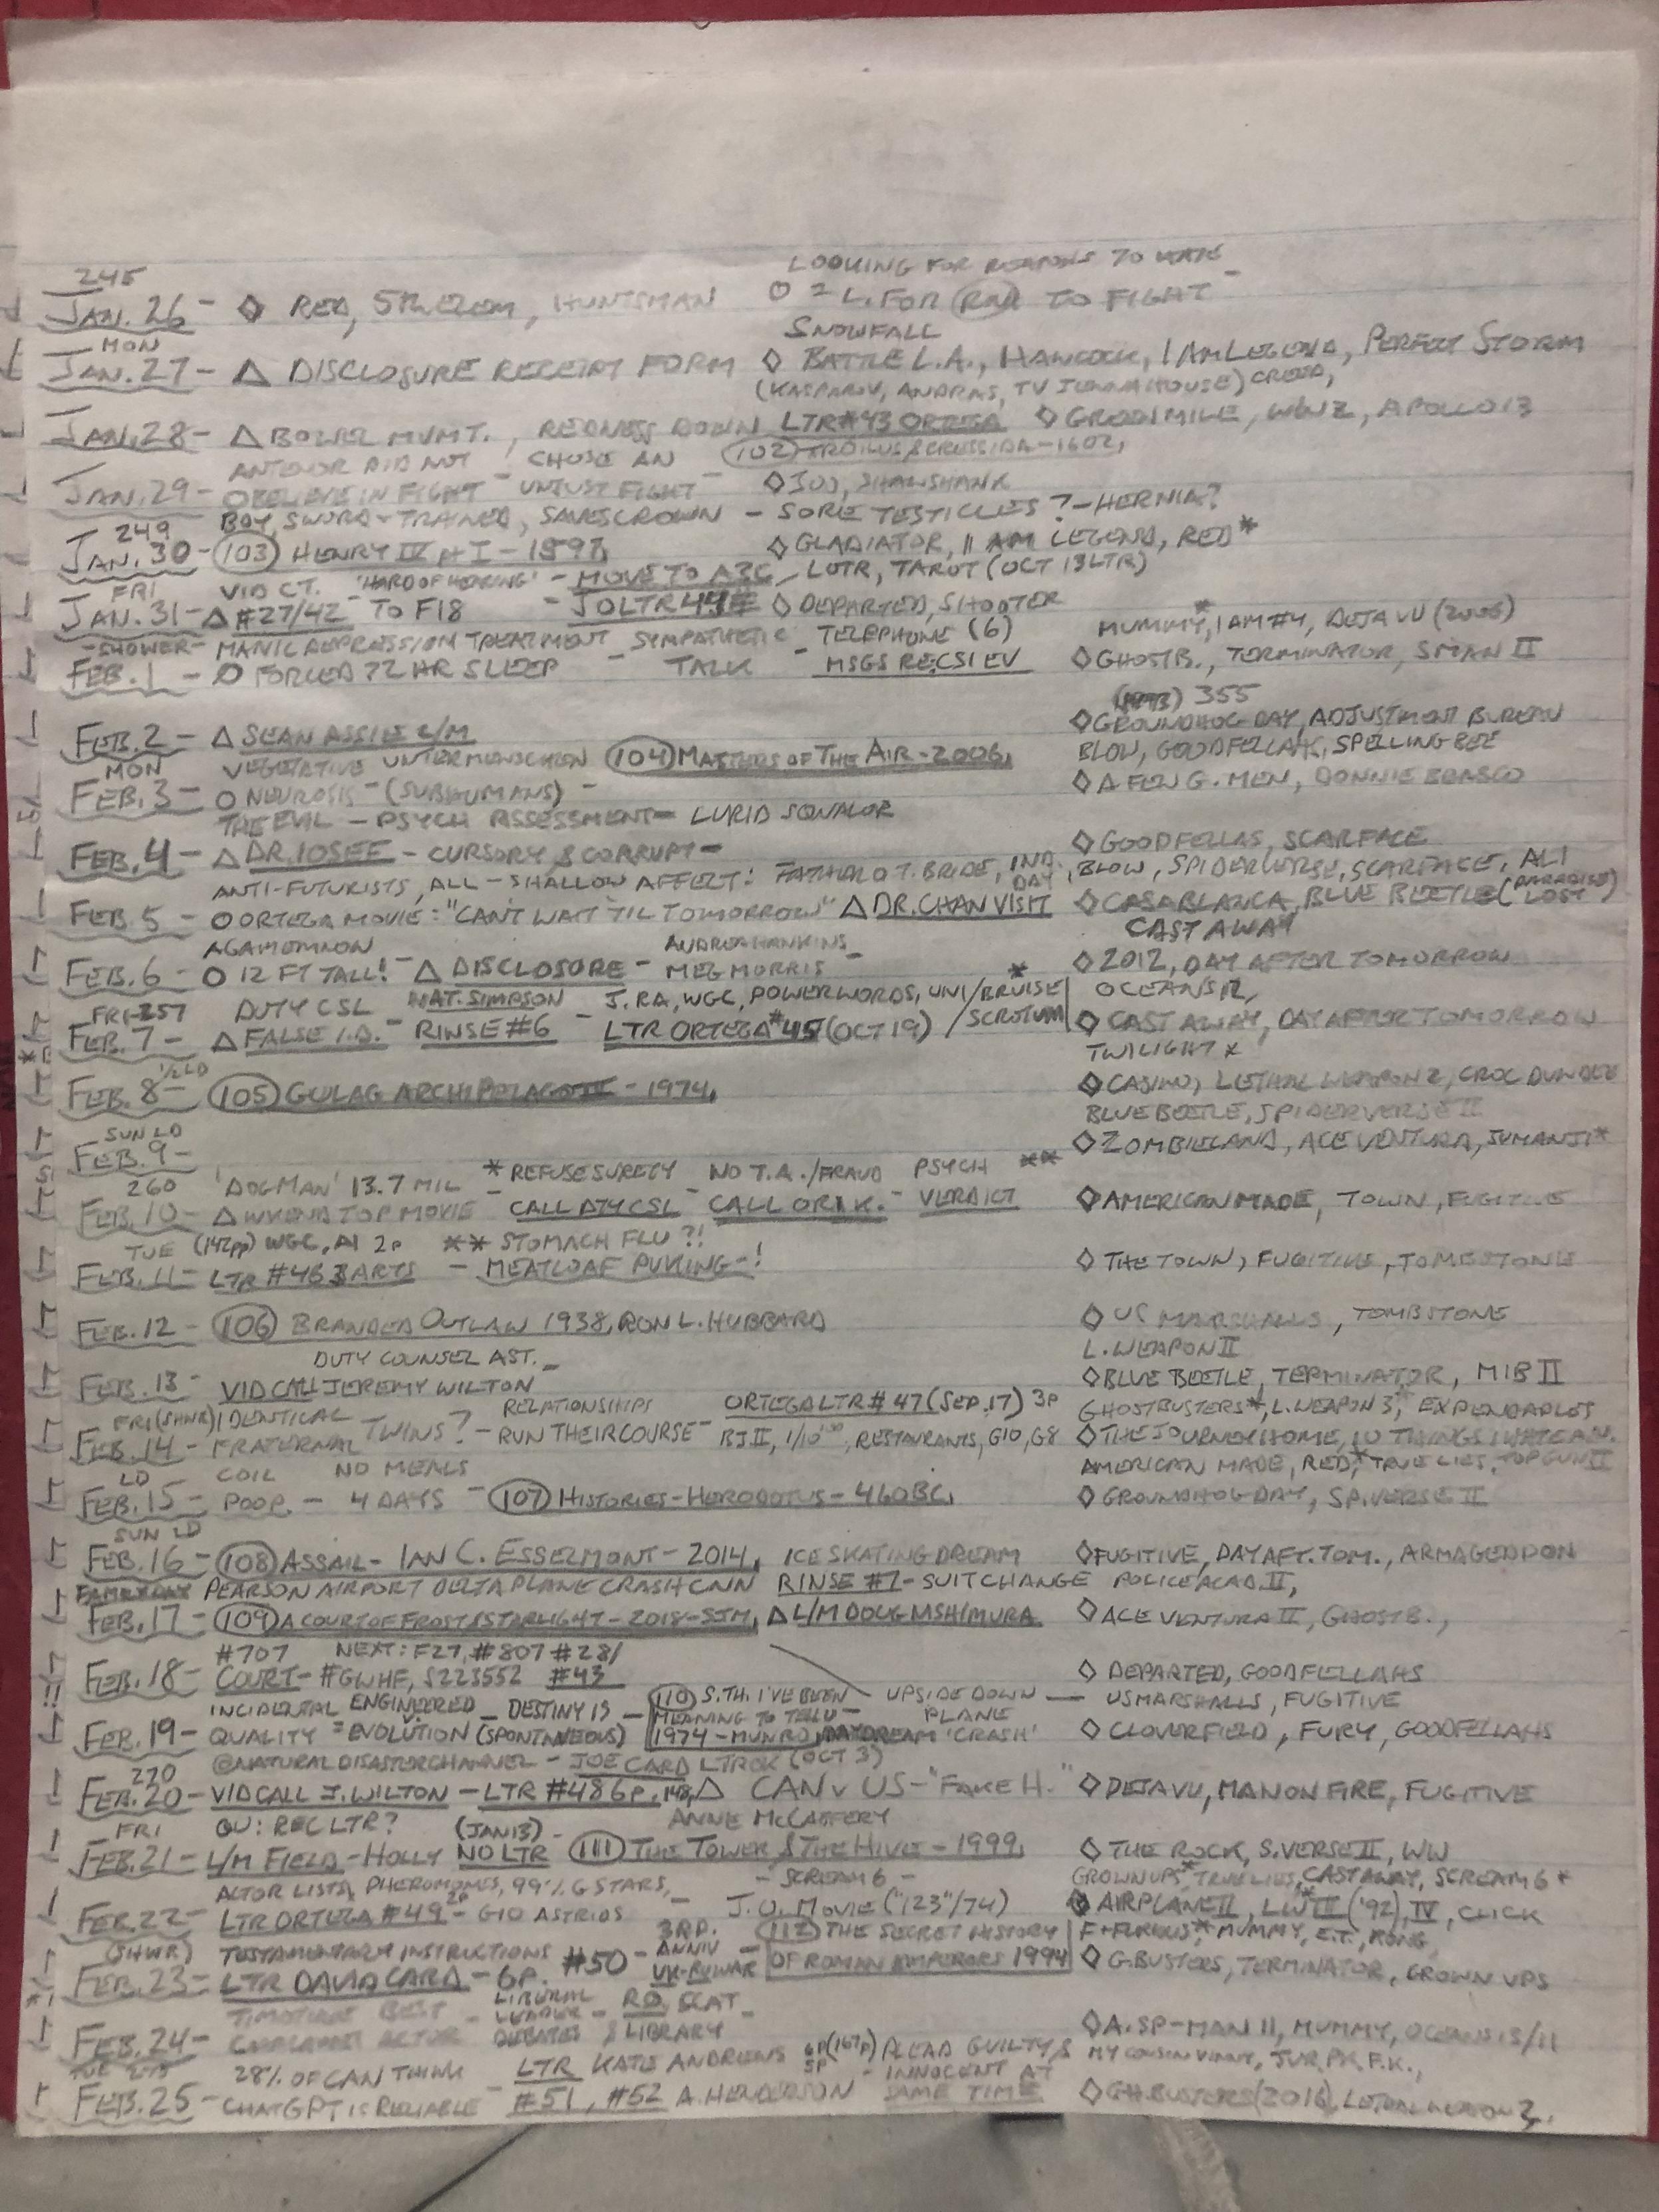 245
LOOKING FOR REASONS TO HATE -
JAN. 26 - ◇ RED, HUNTSMAN O = L. FOR TO FIGHT
MON SNOWFALL
JAN. 27 - △ DISCLOSURE RECEIPT FORM ◇ BATTLE L.A., HANCOCK, I AM LEGEND, PERFECT STORM
(KASPAROV, ANDRAS, TV HOUSE) CREED,
JAN. 28 - △ BOWEL MVMT., REDNESS DOWN LTR #43 ORTEGA ◇ WWZ, APOLLO 13
ANTENOR DID NOT CHOSE AN - (102) TROILUS & CRESSIDA - 1602,
JAN. 29 - BELIEVE IN FIGHT - UNJUST FIGHT ◇ SHAWSHANK
249 BOY, SWORD-TRAINED, SAVES CROWN - SORE TESTICLES? - HERNIA?
JAN. 30 - (103) HENRY IV pt I - 1597, ◇ GLADIATOR, I AM LEGEND, RED*
FRI VID CT. - 'HARD OF HEARING' - MOVE TO A3C LOTR, TAROT (OCT 13 LTR)
JAN. 31 - △ #27/42 TO F18 - JO LTR 44 ◇ DEPARTED, SHOOTER
-SHOWER- MANIC DEPRESSION TREATMENT SYMPATHETIC - TELEPHONE (6) MUMMY,* I AM #4, DEJA VU (2006)
FEB. 1 - O FORCED 72 HR SLEEP - TALK - MSGS REC. SIEV ◇ GHOSTB., TERMINATOR, SMAN II
355
FEB. 2 - △ SEAN ASSILE L/M ◇ GROUNDHOG DAY, ADJUSTMENT BUREAU
MON VEGETATIVE UNTERMENSCHEN (104) MASTERS OF THE AIR - 2006, BLOW, GOODFELLAHS, SPELLING BEE
FEB. 3 - O NEUROSIS - (SUBHUMANS) - ◇ A FEW G. MEN, DONNIE BRASCO
THE EVIL - PSYCH ASSESSMENT - LURID SQUALOR
FEB. 4 - △ DR. IOSEF - CURSORY & CORRUPT - ◇ GOODFELLAS, SCARFACE
ANTI-FUTURISTS, ALL - SHALLOW AFFECT: FATHER O T. BRIDE, IND. DAY, BLOW, SPIDERVERSE, SCARFACE, ALI
FEB. 5 - O ORTEGA MOVIE: "CAN'T WAIT 'TIL TOMORROW" △ DR. CHAN VISIT ◇ CASABLANCA, BLUE BEETLE (PARADISE LOST)
AGAMEMNON AUDREA HANKINS - CAST AWAY
FEB. 6 - O 12 FT TALL! - △ DISCLOSURE - MEG MORRIS ◇ 2012, DAY AFTER TOMORROW
FRI-257 DUTY CSL NAT. SIMPSON J. RA, WGC, POWERWORDS, UNI/BRUISE* OCEANS 12,
FEB. 7 - △ FALSE I.D. - RINSE #6 - LTR ORTEGA #45 (OCT 19) /SCROTUM ◇ CAST AWAY, DAY AFTER TOMORROW
1/2 LD TWILIGHT *
FEB. 8 - (105) GULAG ARCHIPELAGO II - 1974, ◇ CASINO, LETHAL WEAPON 2, CROC DUNDEE
SUN LD BLUE BEETLE, SPIDERVERSE II
FEB. 9 - ◇ ZOMBIELAND, ACE VENTURA, JUMANJI*
260 'DOGMAN' 13.7 MIL * REFUSE SURETY - NO T.A./FRAUD PSYCH **
FEB. 10 - △ WKEND TOP MOVIE - CALL DTY CSL - CALL OR1K. - VERDICT ◇ AMERICAN MADE, TOWN, FUGITIVE
TUE (142pp) WGC, AI 2p ** STOMACH FLU?!
FEB. 11 - LTR #46 3 ARTS - MEATLOAF PUKING - ! ◇ THE TOWN, FUGITIVE, TOMBSTONE
FEB. 12 - (106) BRANDED OUTLAW 1938, RON L. HUBBARD ◇ US MARSHALLS, TOMBSTONE
DUTY COUNSEL AST. - L. WEAPON II
FEB. 13 - VID CALL JEREMY WILTON ◇ BLUE BEETLE, TERMINATOR, MIB II
FRI (SHWR) IDENTICAL TWINS? - RELATIONSHIPS ORTEGA LTR #47 (SEP. 17) 3p GHOSTBUSTERS*, L. WEAPON 3,* EXPENDABLES
FEB. 14 - FRATERNAL RUN THEIR COURSE - BJ II, 1/10, RESTAURANTS, G10, G8 ◇ THE JOURNEY HOME, 10 THINGS I HATE AB.
LD COIL NO MEALS AMERICAN MADE, RED,* TRUE LIES, TOP GUN II
FEB. 15 - POOP. - 4 DAYS - (107) HISTORIES - HERODOTUS - 460 BC, ◇ GROUNDHOG DAY, SP. VERSE II
SUN LD
FEB. 16 - (108) ASSAIL - IAN C. ESSELMONT - 2014, ICE SKATING DREAM ◇ FUGITIVE, DAY AFT. TOM., ARMAGEDDON
FAMILY DAY PEARSON AIRPORT DELTA PLANE CRASH CNN RINSE #7 - SUIT CHANGE POLICE ACAD. II,
FEB. 17 - (109) A COURT OF FROST & STARLIGHT - 2018 - SJM, △ L/M DOUG MSHIMURA ◇ ACE VENTURA II, GHOSTB.,
#707 NEXT: F27, #807 #28/
FEB. 18 - COURT - #GWHF, S223552 #43 ◇ DEPARTED, GOODFELLAHS
INCIDENTAL ENGINEERED - DESTINY IS - (110) S.TH. I'VE BEEN UPSIDE DOWN — US MARSHALLS, FUGITIVE
FEB. 19 - QUALITY = EVOLUTION (SPONTANEOUS) MEANING TO TELL U - PLANE
1974 - MUNRO, DAYDREAM 'CRASH' ◇ CLOVERFIELD, FURY, GOODFELLAHS
270 @NATURALDISASTERCHANNEL - JOE CARD LTR OK (OCT 3)
FEB. 20 - VID CALL J. WILTON - LTR #48 6p, 148, △ CAN v US - "FAKE H." ◇ DEJA VU, MAN ON FIRE, FUGITIVE
FRI QU: REC LTR? (JAN 13) - ANNE McCAFFERY
FEB. 21 - L/M FIELD - HOLLY NO LTR (111) THE TOWER & THE HIVE - 1999, ◇ THE ROCK, S. VERSE II, WW
ACTOR LISTS, PHEROMONES, 99% G STARS, - - SCREAM 6 - GROWN UPS*, TRUE LIES, CAST AWAY, SCREAM 6 *
FEB. 22 - LTR ORTEGA #49 - 2p G10 ASTRIDS J.O. MOVIE ("123"/74) ◇ AIRPLANE II, LW III* ('92), IV, CLICK
(SHWR) TESTAMENTARY INSTRUCTIONS 3RD. ANNIV (112) THE SECRET HISTORY F+FURIOUS,* MUMMY, E.T., KONG,
FEB. 23 - LTR DAVID CARD - 6p. #50 - UK-RU WAR OF ROMAN EMPERORS 1994 ◇ G. BUSTERS, TERMINATOR, GROWN UPS
BEST - LIBERAL LEADER - RO, SCAT -
FEB. 24 - ACTOR DEBATES & LIBRARY ◇ A. SP-MAN II, MUMMY, OCEANS 13/11
TUE 275 28% OF CAN THINK - LTR KATE ANDREWS 6p (167p) PLEAD GUILTY & MY COUSIN VINNY, JUR. PK, F.K.,
FEB. 25 - CHATGPT IS RELIABLE #51, #52 A. HENDERSON 5p - INNOCENT AT SAME TIME ◇ GH. BUSTERS (2016), LETHAL WEAPON 3,